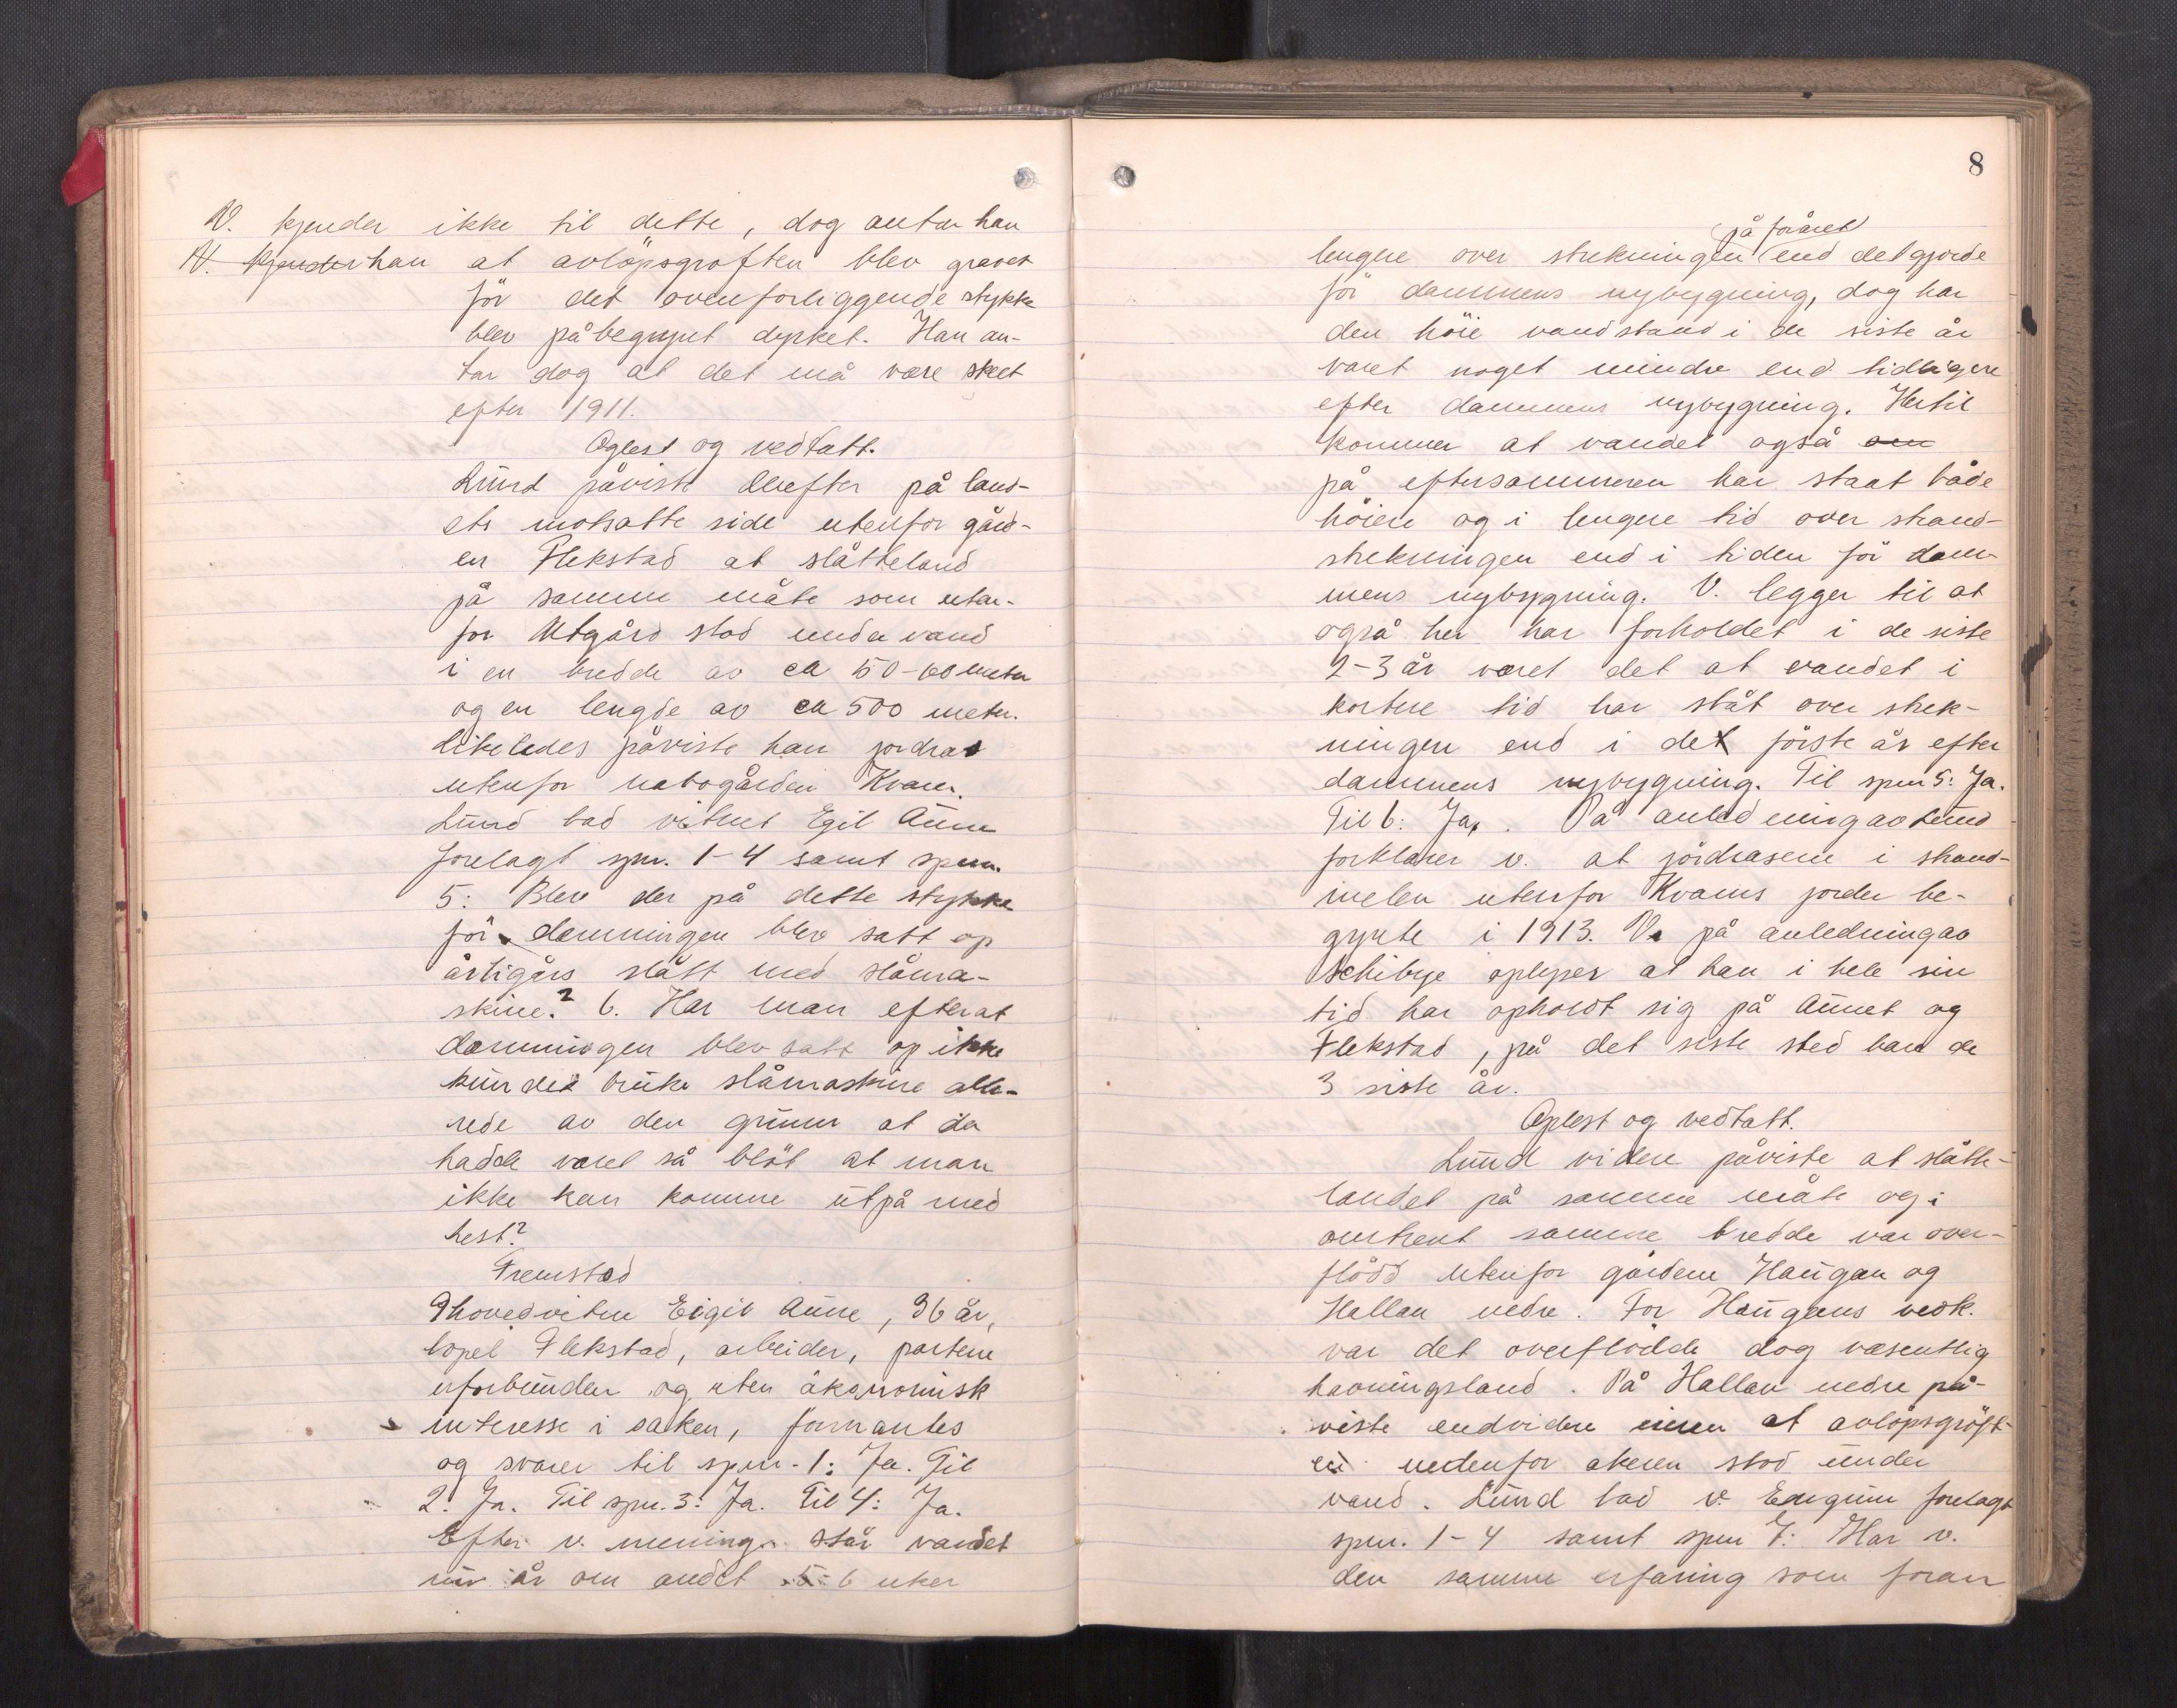 V. kjender ikke til dette, dog antar han
N. kjender han at avløpsgrøften blev gravet
før det ovenforliggende stykke
blev påbegynt dyrket. Han an-
tar dog at det må være skeet
efter 1911.
Oplest og vedtatt.
Lund påviste derefter på land-
ets motsatte side utenfor gård-
en Flekstad at slåtteland
på samme måte som utan-
for Utgård stod under vand
i en bredde av ca 50-60 meter
og en lengde av ca 500 meter.
Likeledes påviste han jordras
utenfor nabogården Kvam.
Lund bad vitnet Egil Aune
forelagt spm. 1-4 samt spm.
5: Blev der på dette stykke
før demningen blev satt op
årtigårs slått med slåma-
skine? 6. Har man efterat
demningen blev satt op ikke
kundet bruke slåmaskine alle-
rede av den grunn at da
hadde været så bløt at man
ikke kan komme utpå med
hest?
Fremstod
9 hovedvitne Eigil Aune, 36 år,
bopel Flekstad, arbeider, partene
uforbunden og uten økonomisk
interesse i saken, formantes
og svarer til spm. 1: Ja. Til
2. Ja. Til spm. 3: Ja. Til 4: Ja.
Efter v. mening står vandet
nu år om andet 5-6 uker
8
på foråret
lengere over strekningen end det gjorde
før dammens nybygning, dog har
den høie vandstand i de siste år
været noget mindre end tidligere
efter dammens nybygning. Hertil
kommer at vandet også om
på eftersommeren har staat både
høiere og i lengere tid over strand-
strekningen end i tiden før dam-
mens nybygning. V. legger til at
også her har forholdet i de siste
2-3 år været det at vandet i
kortere tid har ståt over strek-
ningen end i det første år efter
dammens nybygning. Til spm 5: Ja.
Til 6: Ja. På anledning av Lund
forklarer v. at jordrasene i strand-
melen utenfor Kvams jorder be-
gynte i 1913. V. på anledning av
Schibye oplyser at han i hele sin
tid har opholdt sig på Aunet og
Flekstad, på det siste sted bare de
3 siste år.
Oplest og vedtatt.
Lund videre påviste at slåtte-
landet på samme måte og i
omtrent samme bredde var over-
flødd utenfor gårdene Haugan og
Hallan nedre. For Haugans vedk.
var det overflødde dog væsentlig
havningsland. På Hallan nedre på-
viste endvidere at avløpsgrøft-
en nedenfor akeren stod under
vand. Lund bad v. forelagt
spm. 1-4 samt spm 7: Har v.
den samme erfaring som foran